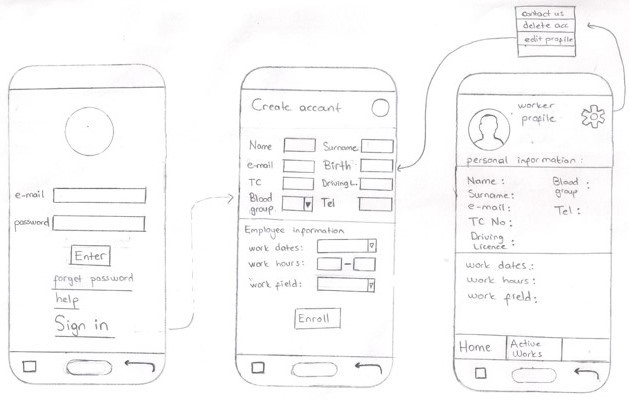 contact us
delete acc
edit profile
e-mail
password
Enter
forget password
help
Sign in
Create account
Name
Surname
e-mail
Birth
TC
Driving L.
Blood group
Tel
Employee Information
work dates:
work hours:
-
work field:
Enroll
worker
profile
personal information :
Name :
Surname:
e-mail:
TC No :
Driving
Licence :
Blood
group :
Tel :
work dates :
work hours :
work field :
Home
Active
Works